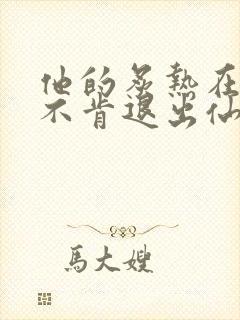 他的炙熱在
不肯退出仙
馬大嫂